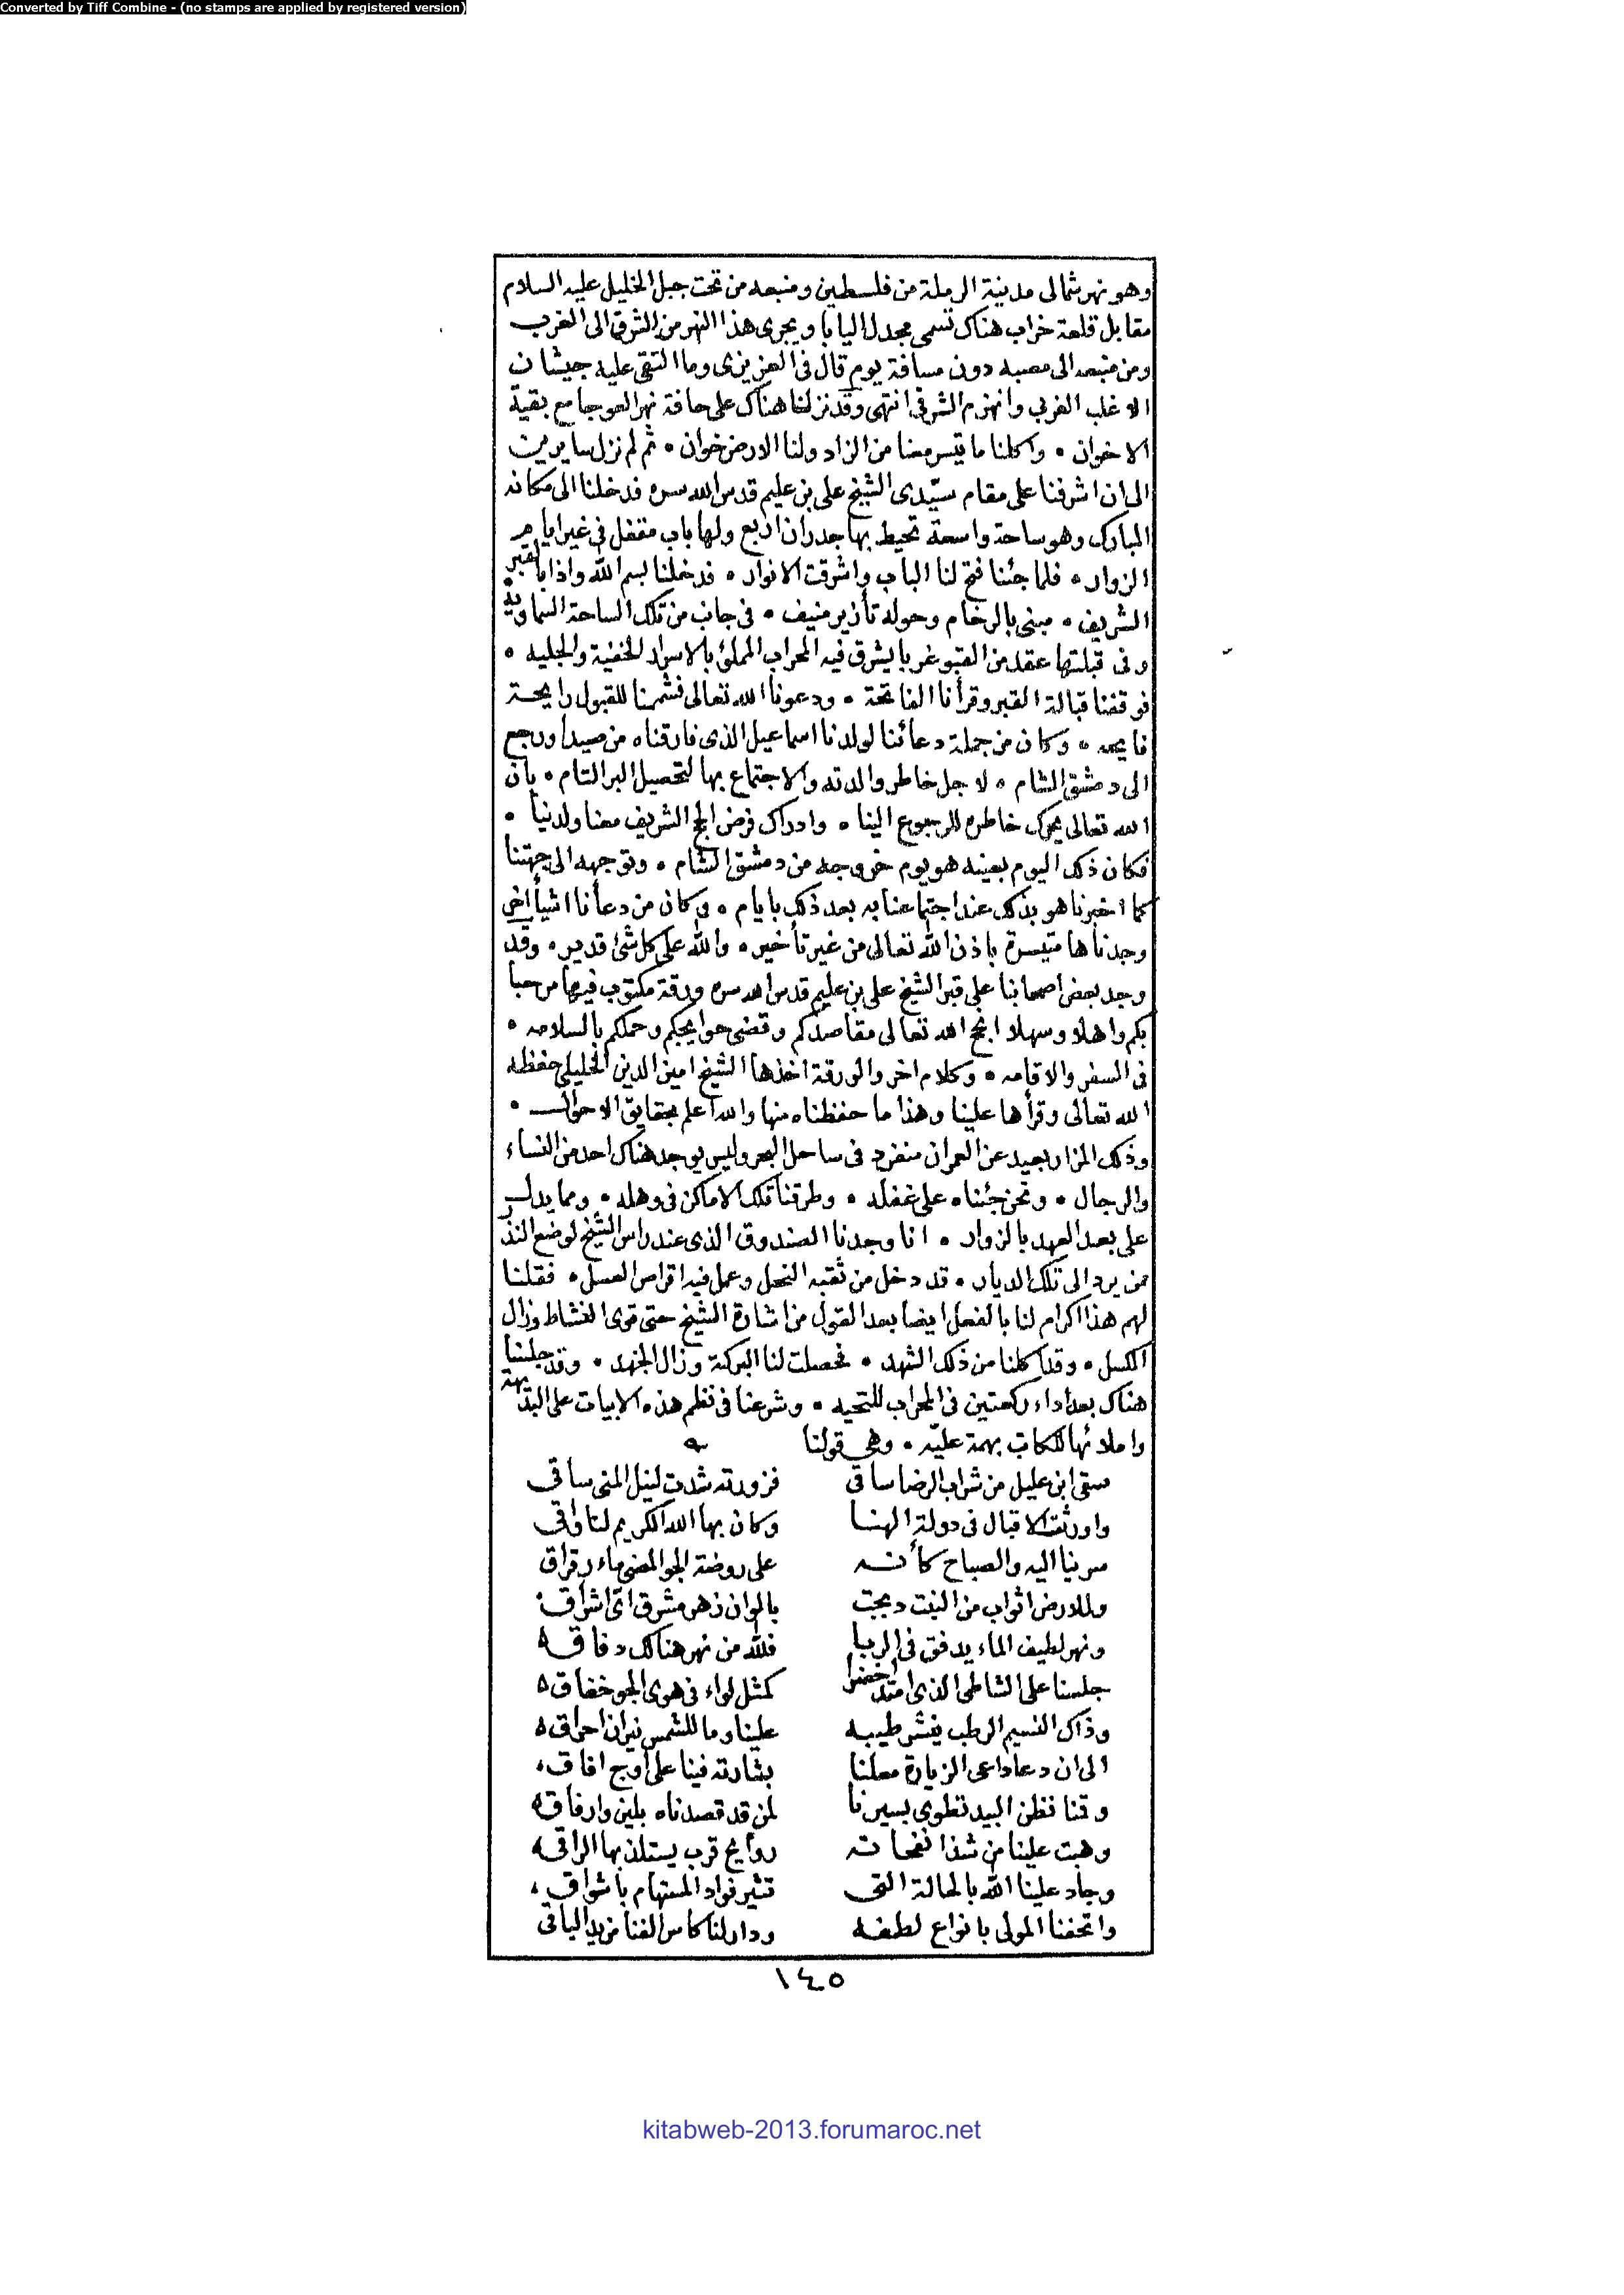 Converted by Tiff Combine - (no stamps are applied by registered version)
وهو نهر شمالى مدينة الرملة من فلسطين ومنبعه من تحت جبل الخليل عليه السلام
مقابل قلعة خراب هناك تسمى مجدل اليابا ويجرى هذا النهر من الشرق الى الغرب
ومن منبعه الى مصبه دون مسافة يوم قال فى العزيزى وما التقى عليه جيشان
الا غلب الغربى وانهزم الشرقى انتهى وقد نزلنا هناك على حافة نهر العوجا مع بقية
الاخوان ۰ واكلنا ما تيسر معنا من الزاد ولنا الارض خوان ۰ ثم لم نزل سايرين
الى ان اشرفنا على مقام سيّدى الشيخ على بن عليم قدس الله سره فدخلنا الى مكانه
المبارك وهو ساحة واسعة تحيط بها جدران اربع ولها باب مقفل فى غير ايام
الزوار ۰ فلما جئنا فتح لنا الباب واشرقت الانوار ۰ فدخلنا بسم الله واذا بالقبر
الشريف ۰ مبنى بالرخام وحوله تأزير منيف ۰ فى جانب من تلك الساحة السماوية
وفى قبلتها عقد من القبو غربا يشرق فيه المحراب المملئ بالاسرار الخفية والجليه ۰
فوقفنا قبالة القبر وقرأنا الفاتحة ۰ ودعونا الله تعالى فشممنا للقبول رايحة
فايحه ۰ وكان من جملة دعائنا لولدنا اسماعيل الذى فارقناه من صيدا ورجع
الى دمشق الشام ۰ لاجل خاطر والدته والاجتماع بها لتحصيل البر التام ۰ بان
الله تعالى يحرك خاطره للرجوع الينا ۰ وادراك فرض الحج الشريف معنا ولدنيا ۰
فكان ذلك اليوم بعينه هو يوم خروجه من دمشق الشام ۰ وتوجهه الى جهتنا
كما اخبرنا هو بذلك عند اجتماعنا به بعد ذلك بايام ۰ وكان من دعأنا اشيأ اخر
وجدناها متيسرة باذن الله تعالى من غير تأخير ۰ والله على كل شئ قدير ۰ وقد
وجد بعض اصحابنا على قبر الشيخ على بن عليم قدس الله سره ورقة مكتوب فيها مرحبا
بكم واهلا وسهلا انجح الله تعالى مقاصدكم وقضى حوايجكم وحملكم بالسلامه ۰
فى السفر والاقامه ۰ وكلام اخر والورقة اخذها الشيخ امين الدين الخليلى حفظه
الله تعالى وقرأها علينا وهذا ما حفظناه منها والله اعلم بحقايق الاحوال ۰
وذلك المزار بعيد عن العمران منفرد فى ساحل البحر وليس يوجد هناك احد من النساء
والرجال ۰ ونحن جئناه على غفله ۰ وطرقنا تلك الاماكن فى وهله ۰ ومما يدل
على بعد العهد بالزوار ۰ انا وجدنا الصندوق الذى عند راس الشيخ لوضع النذر
ممن يرد الى تلك الديار ۰ قد دخل من ثقبه النحل وعمل فيه اقراص العسل ۰ فقلنا
لهم هذا اكرام لنا بالفعل ايضا بعد القول من اشارة الشيخ حتى قوى النشاط وزال
الكسل ۰ وقد اكلنا من ذلك الشهد ۰ فحصلت لنا البركة وزال الجهد ۰ وقد جلسنا
هناك بعد اداء ركعتين فى المحراب للتحيه ۰ وشرعنا فى نظم هذه الابيات على البديهة
واملائها للكاتب بهمة عليّه ۰ وهى قولنا
سقى ابن عليل من شراب الرضا ساقى فزورته شدت لنيل المنى ساقى
واورثت الاقبال فى دولة الهنا وكان بها الله الكريم لنا واقى
سرينا اليه والصباح كأنه على روضة الجو المضى ماء رقراق
وللارض اثواب من النبت دبجت بالوان زهر مشرق اىّ اشراق
ونهر لطيف الماء يدفق فى الربا فلله من نهر هنالك دفاق
جلسنا على الشاطى الذى امتد اخضرا كمثل لواء فى هوى الجو خفاق
وذاك النسيم الرطب ينشر طيبه علينا وما للشمس نيران احراق
الى ان دعا داعى الزيارة معلنا بشارته فينا على اوج افاق
وقمنا نظن البيد تطوى بسيرنا لمن قد قصدناه بلين وارفاق
وهبت علينا من شذا نفحاته روايح قرب يستلذ بها الراقى
وجاد علينا الله بالحالة التى تثير فواد المستهام باشواق
واتحفنا المولى بانواع لطفه ودار لنا كاس الفنا من يد الباقى
١٤٥
kitabweb-2013.forumaroc.net